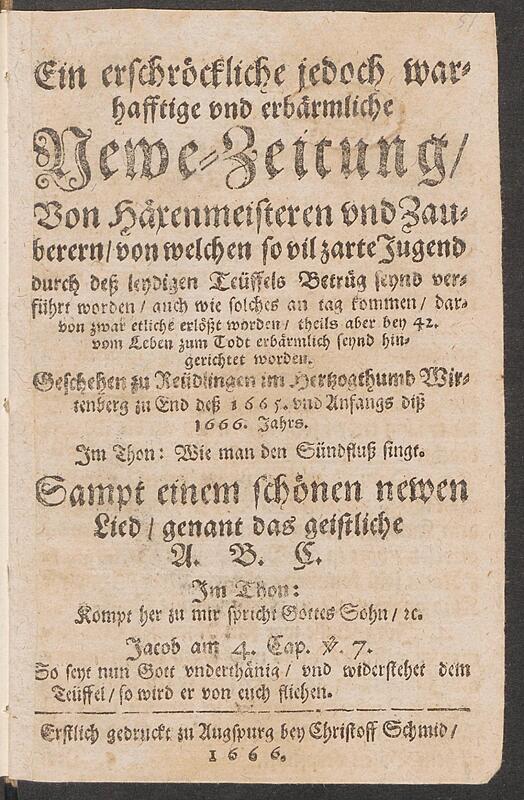 51
Ein erschröckliche jedoch war⸗
hafftige vnd erbärmliche
Newe⸗Zeitung/
Von Häxenmeisteren vnd Zau⸗
berern/ von welchen so vil zarte Jugend
durch deß leydigen Teüffels Betrüg seynd ver⸗
führt worden/ auch wie solches an tag kommen/ dar⸗
von zwar etliche erlößt worden/ theils aber bey 42.
vom Leben zum Todt erbärmlich seynd hin⸗
gerichtet worden.
Geschehen zu Reüdlingen im Hertzogthumb Wir⸗
tenberg zu End deß 1665. vnd Anfangs diß
1666. Jahrs.
Im Thon: Wie man den Sündfluß singt.
Sampt einem schönen newen
Lied/ genant das geistliche
A. B. C.
Im Thon:
Kompt her zu mir spricht Gottes Sohn/ ꝛc.
Jacob am 4. Cap. ℣. 7.
So seyt nun Gott vnderthänig/ vnd widerstehet dem
Teüffel/ so wird er von euch fliehen.
Erstlich gedruckt zu Augspurg bey Christoff Schmid/
1666.